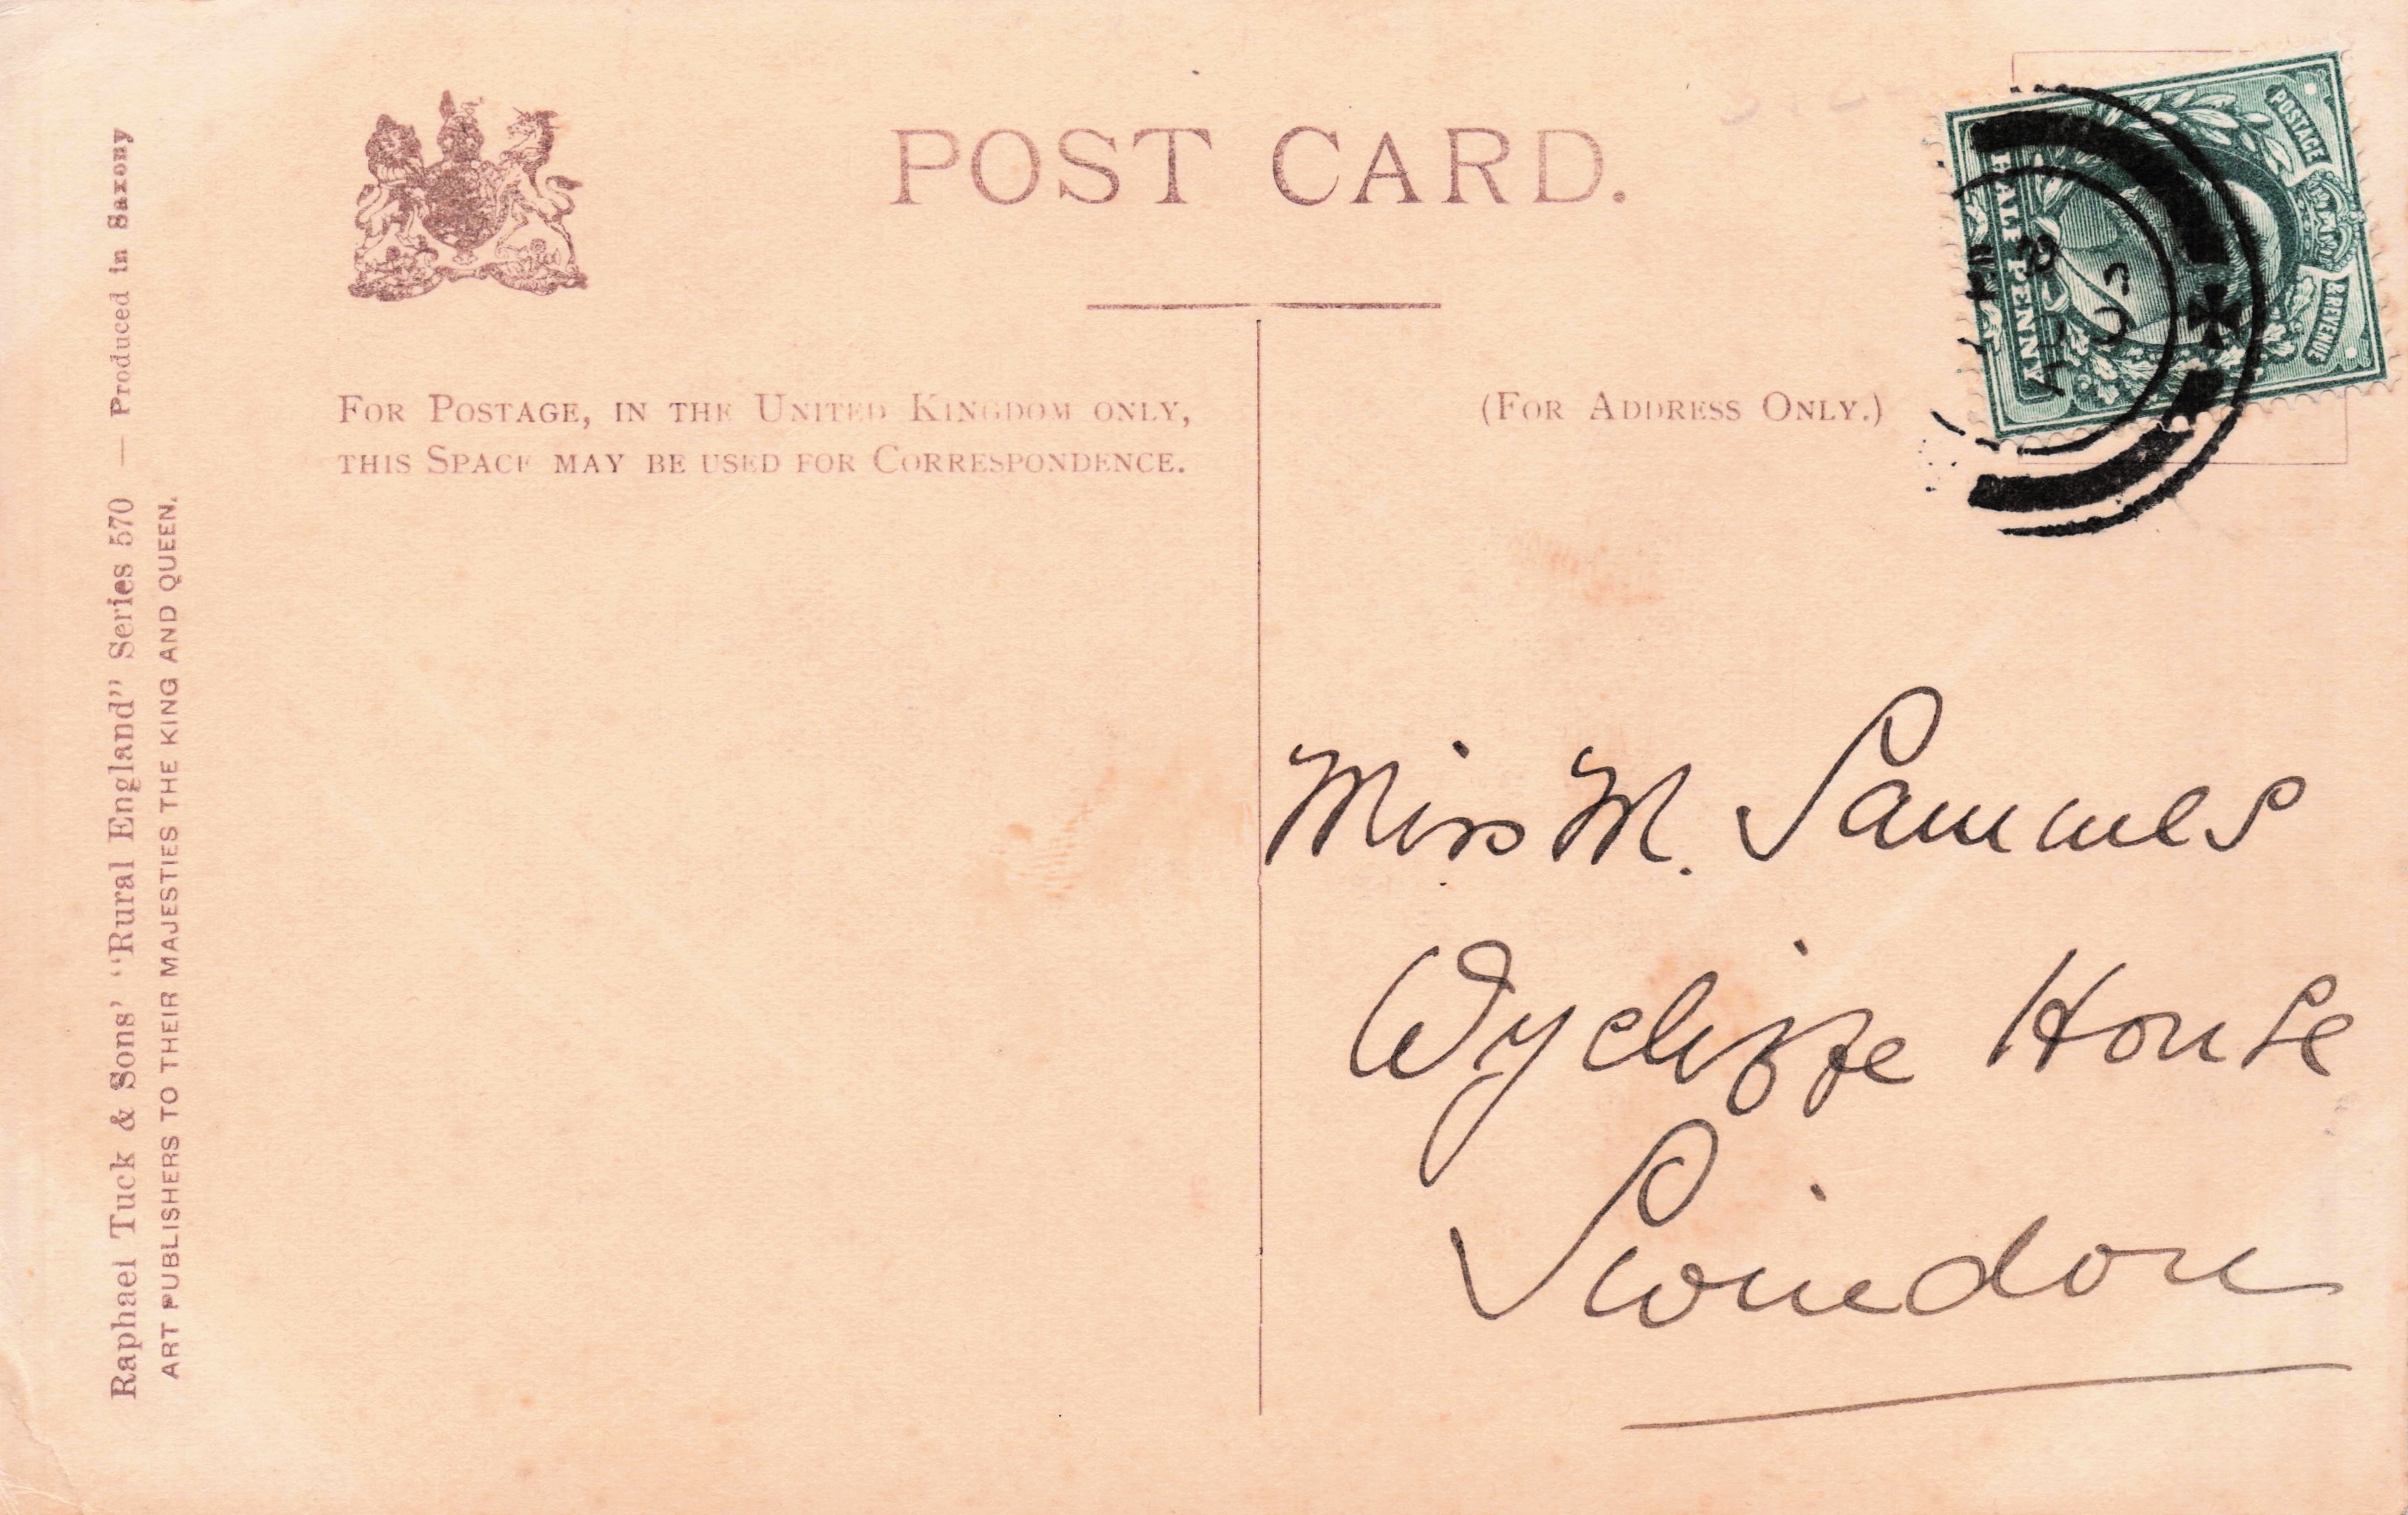 POST CARD.
FOR POSTAGE, IN THE UNITED KINGDOM ONLY,
THIS SPACE MAY BE USED FOR CORRESPONDENCE.
(FOR ADDRESS ONLY.)
POSTAGE
& REVENUE
HALFPENNY
Miss M. Sammes
Wycliffe House
Swindon
Raphael Tuck & Sons' "Rural England" Series 570 — Produced in Saxony
ART PUBLISHERS TO THEIR MAJESTIES THE KING AND QUEEN.